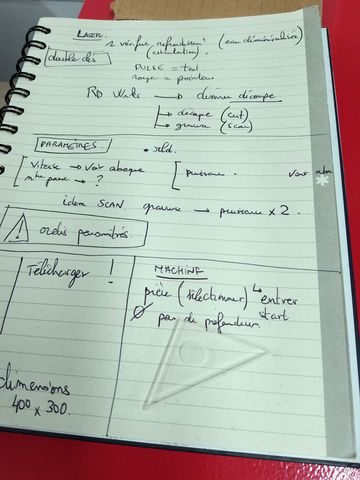 LASER.
1 vérifier refroidissement (eau déminéralisée)
(circulation)
double clés
PULSE = test
rouge = pointeur
RD Works → dessiner découpe
→ découpe (cut)
→ gravure (scan)
PARAMÈTRES. • .rld.
vitesse → voir abaque
nbre passe → ?
puissance. voir
idem SCAN gravure → puissance x 2.
! ordis paramétrés
Télécharger !
MACHINE
pièce (sélectionner) ↳ entrer
start
Ø pas de profondeur
dimensions
400 x 300.